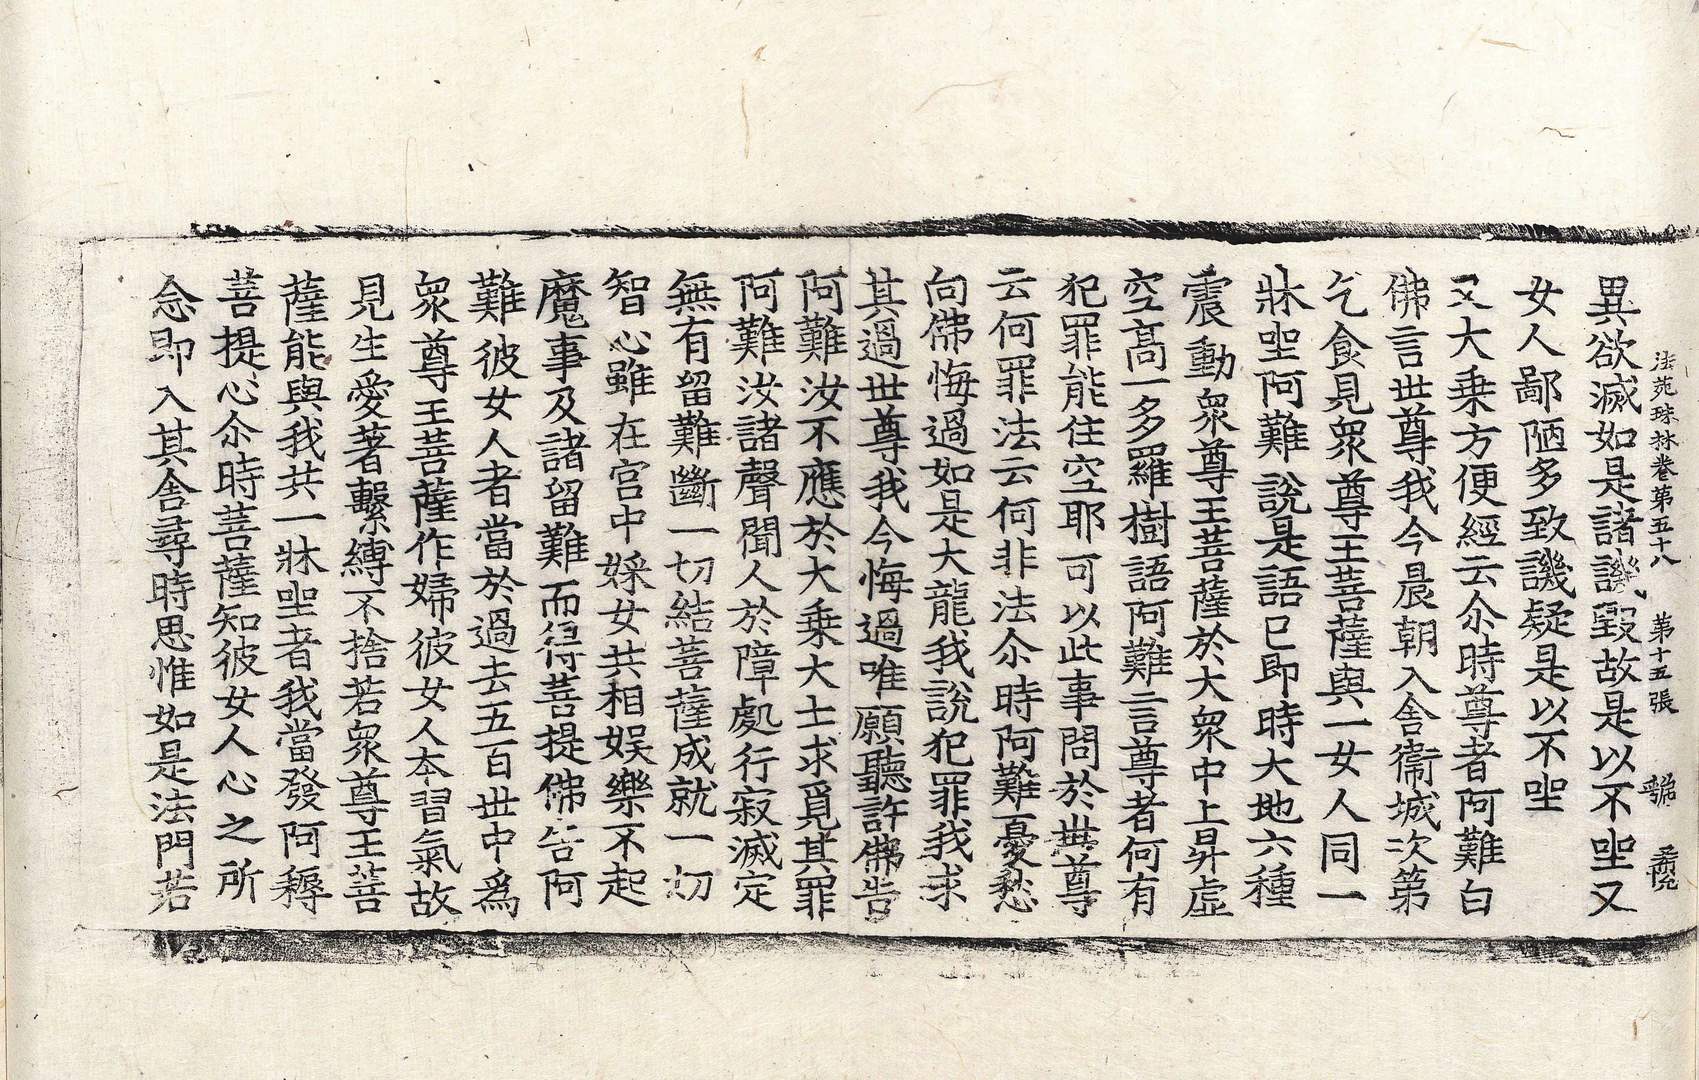 法苑珠林卷第五十八　第十五張　號
異欲滅如是諸譏毀故是以不坐又
女人鄙陋多致譏疑是以不坐
又大乗方便經云尒時尊者阿難白
佛言世尊我今晨朝入舍衛城次第
乞食見衆尊王菩薩與一女人同一
牀坐阿難說是語已即時大地六種
震動衆尊王菩薩於大衆中上昇虛
空髙一多羅樹語阿難言尊者何有
犯罪能住空耶可以此事問於世尊
云何罪法云何非法尒時阿難憂愁
向佛悔過如是大龍我說犯罪我求
其過世尊我今悔過唯願聽許佛告
阿難汝不應於大乗大士求覓其罪
阿難汝諸聲聞人於障處行寂滅定
無有留難斷一切結菩薩成就一切
智心雖在宮中婇女共相娛樂不起
魔事及諸留難而得菩提佛告阿
難彼女人者當於過去五百世中爲
衆尊王菩薩作婦彼女人本習氣故
見生愛著繫縛不捨若衆尊王菩
薩能與我共一牀坐者我當發阿耨
菩提心尒時菩薩知彼女人心之所
念即入其舍尋時思惟如是法門若